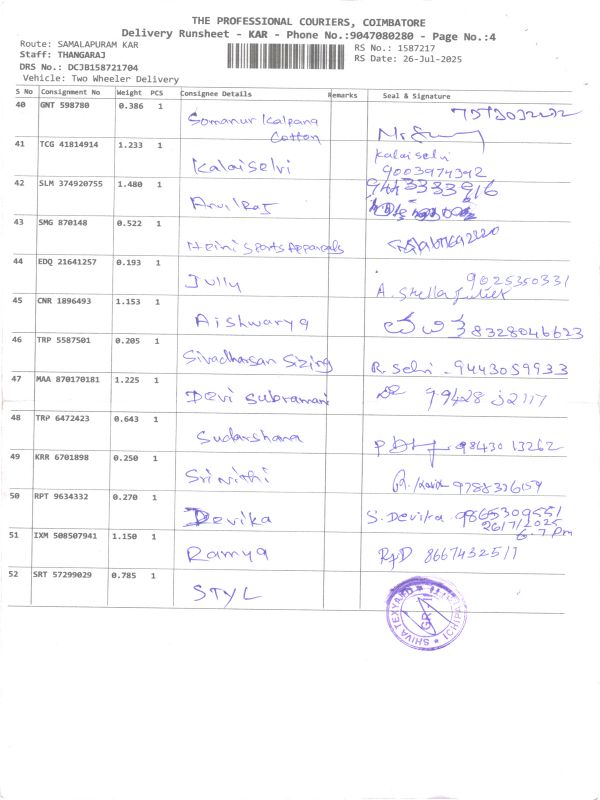 THE PROFESSIONAL COURIERS, COIMBATORE
Delivery Runsheet - KAR - Phone No.:9047080280 - Page No.:4
Route: SAMALAPURAM KAR
Staff: THANGARAJ
DRS No.: DCJB158721704
Vehicle: Two Wheeler Delivery
RS No.: 1587217
RS Date: 26-Jul-2025
S No Consignment No Weight PCS Consignee Details Remarks Seal & Signature
40 GNT 598780 0.386 1 Somanur Kalpana
Cotton
41 TCG 41814914 1.233 1 Kalaiselvi Kalaiselvi
9003974342
42 SLM 374920755 1.480 1 Arulraj 9443333916
43 SMG 870148 0.522 1 Heini Sports Apparals
44 EDQ 21641257 0.193 1 Jully 9025350331
A. Stella Juliet
45 CNR 1896493 1.153 1 Aishwarya 8328046623
46 TRP 5587501 0.205 1 Sivadharsan Sizing R. Selvi - 9443059933
47 MAA 870170181 1.225 1 Devi Subramani
48 TRP 6472423 0.643 1 Sudarshana 98430 13262
49 KRR 6701898 0.250 1 Srinithi 9788326159
50 RPT 9634332 0.270 1 Devika S. Devika 9865309551
26/7/2025
6.7 Pm
51 IXM 508507941 1.150 1 Ramya 8667432517
52 SRT 57299029 0.785 1 STYL
SHIVA TEXYARN